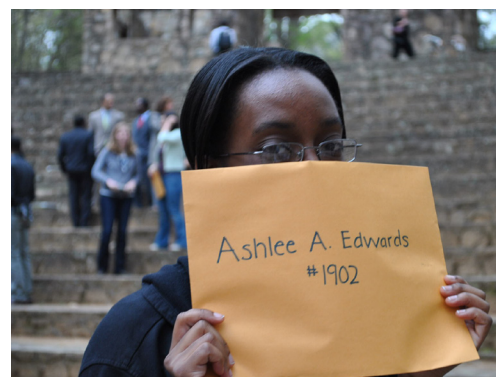 Ashlee A. Edwards
#1902